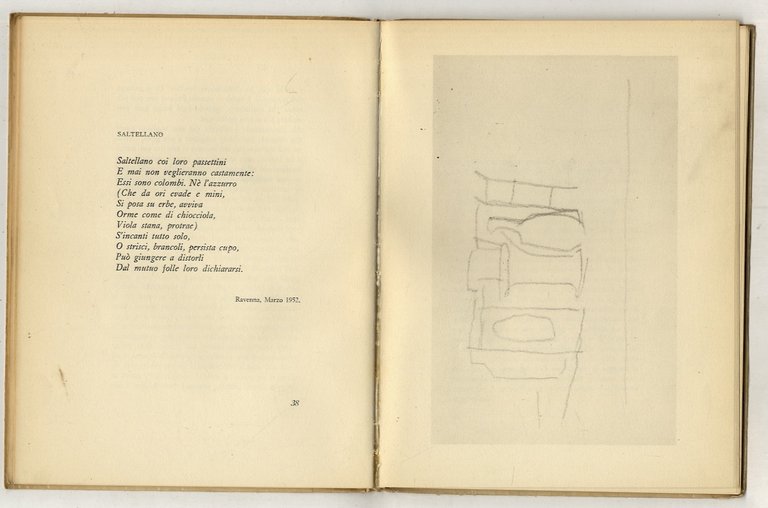 SALTELLANO
Saltellano coi loro passettini
E mai non veglieranno castamente:
Essi sono colombi. Nè l'azzurro
(Che da ori evade e mini,
Si posa su erbe, avviva
Orme come di chiocciola,
Viola stana, protrae)
S'incanti tutto solo,
O strisci, brancoli, persista cupo,
Può giungere a distorli
Dal mutuo folle loro dichiararsi.
Ravenna, Marzo 1952.
38